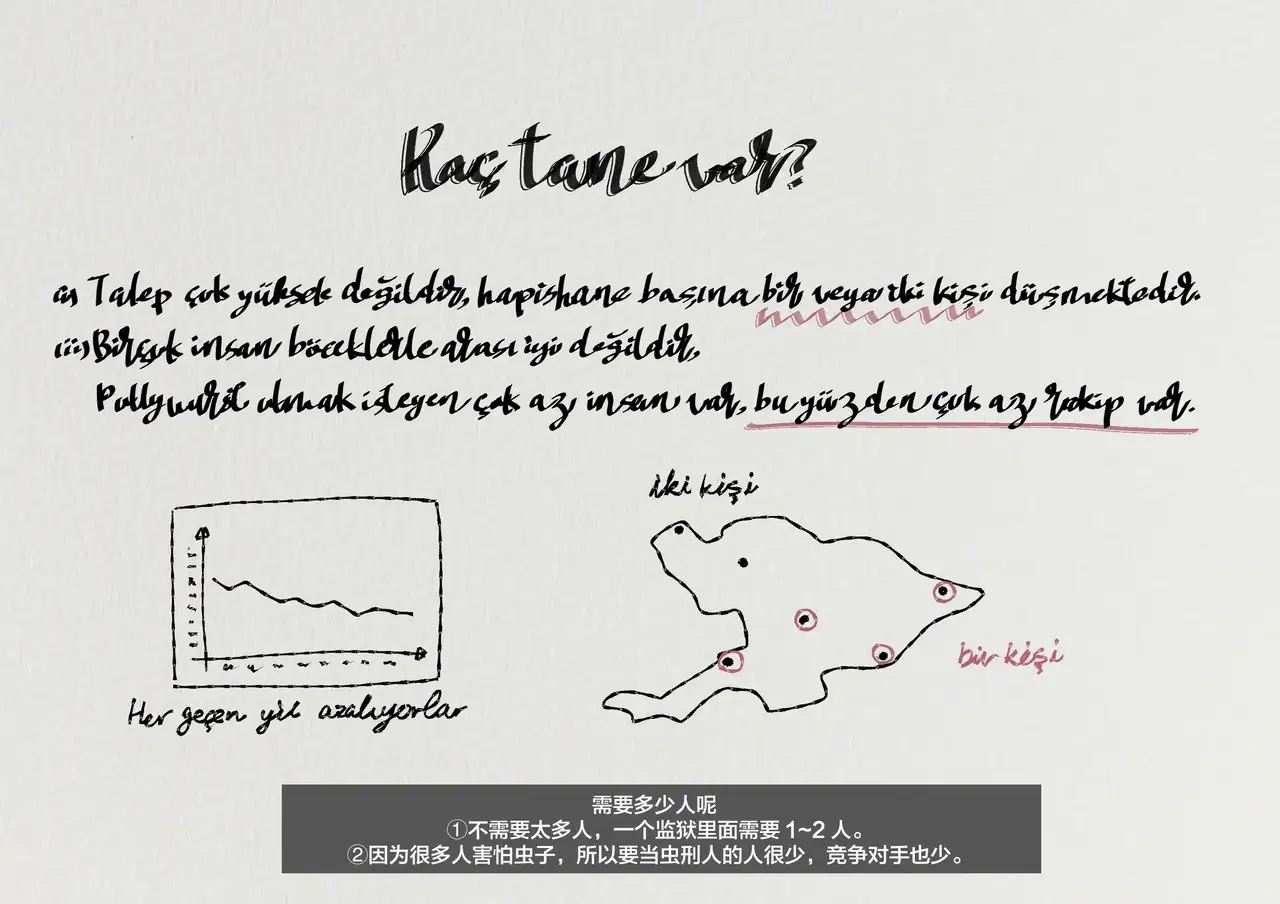 Kaç tane var?
(i) Talep çok yüksek değildir, hapishane başına bir veya iki kişi düşmektedir.
(ii) Birçok insan böceklerle arası iyi değildir,
Pollywurst olmak isteyen çok azı insan var, bu yüzden çok azı rakip var.
iki kişi
bir kişi
Her geçen yıl azalıyorlar
需要多少人呢
①不需要太多人，一个监狱里面需要 1~2 人。
②因为很多人害怕虫子，所以要当虫刑人的人很少，竞争对手也少。